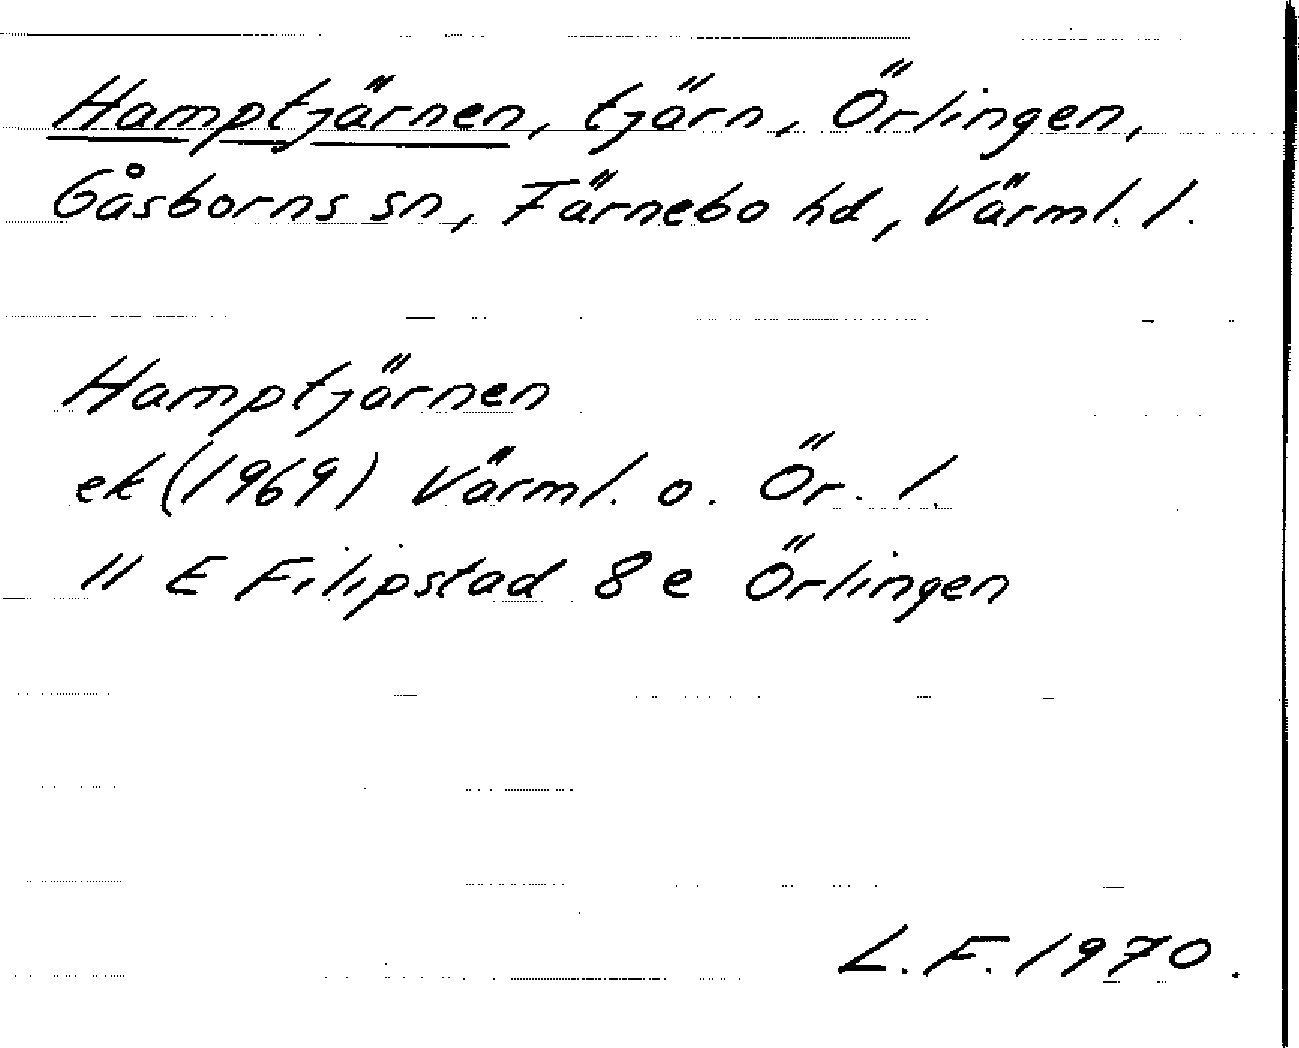 Hamptjärnen, tjärn, Örlingen,
Gåsborns sn, Färnebo hd, Värml. l.
Hamptjärnen
ek (1969) Värml. o. Ör. l.
11 E Filipstad 8 e Örlingen
L. F. 1970.